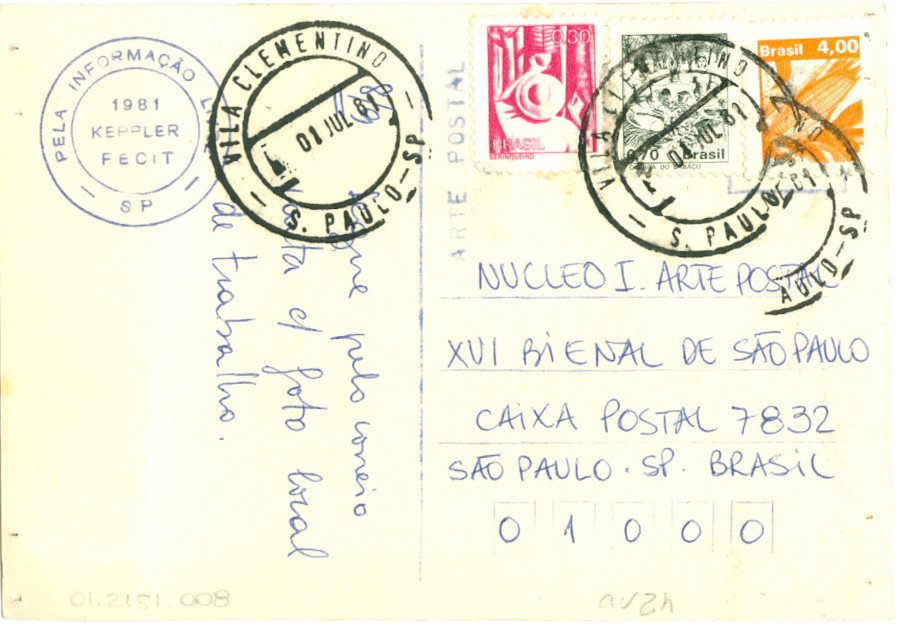 PELA INFORMAÇÃO
1981
KEPPLER
FECIT
SP
VILA CLEMENTINO
01 JUL 81
S. PAULO-SP
ARTE POSTAL
0,30
BRASIL
SERINGUEIRO
Brasil
Brasil 4,00
01 JUL 81
S. PAULO
NUCLEO I. ARTE POSTAL
XVI BIENAL DE SÃO PAULO
CAIXA POSTAL 7832
SÃO PAULO. SP. BRASIL
0 1 0 0 0
pelo correio
c/ foto local
de trabalho.
01.2151.008